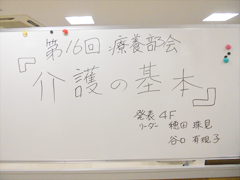 第16回 療養部会
『介護の基本』
発表 4F
リーダー 穂田 珠見
谷口 有規子